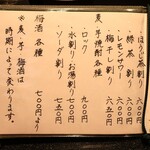 ほうじ茶割り 六〇〇円
緑茶割り 六〇〇円
レモンサワー 六〇〇円
梅干し割り 六五〇円
麦・芋焼酎 各種
・ロック 九〇〇円
・水割り・お湯割り 七〇〇円
・ソーダ割り 七五〇円
梅酒 各種 七〇〇円より
※麦、芋、梅酒は
時期によって変わります。